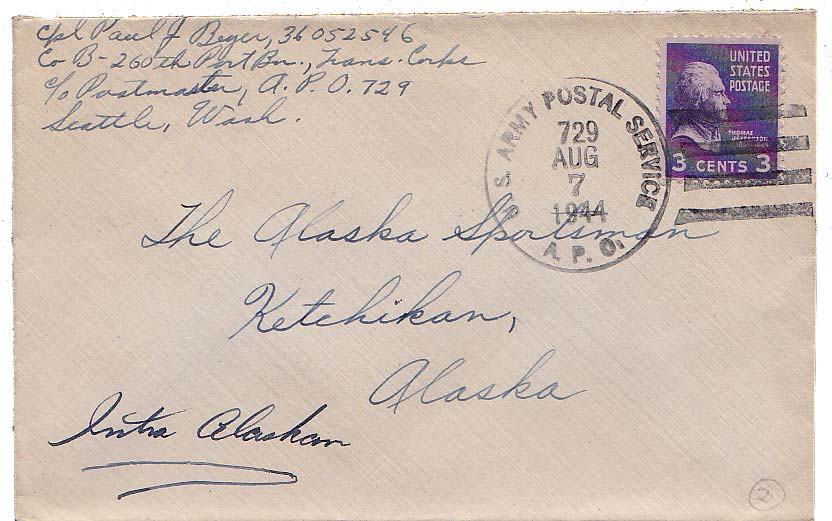 Cpl Paul J Beyer, 36052596
Co B-260th Port Bn., Trans. Corps
c/o Postmaster, A.P.O. 729
Seattle, Wash.
UNITED
STATES
POSTAGE
THOMAS
JEFFERSON
3 CENTS 3
U.S. ARMY POSTAL SERVICE
729
AUG
7
1944
A.P.O.
The Alaska Sportsman
Ketchikan,
Alaska
Intra Alaskan
2